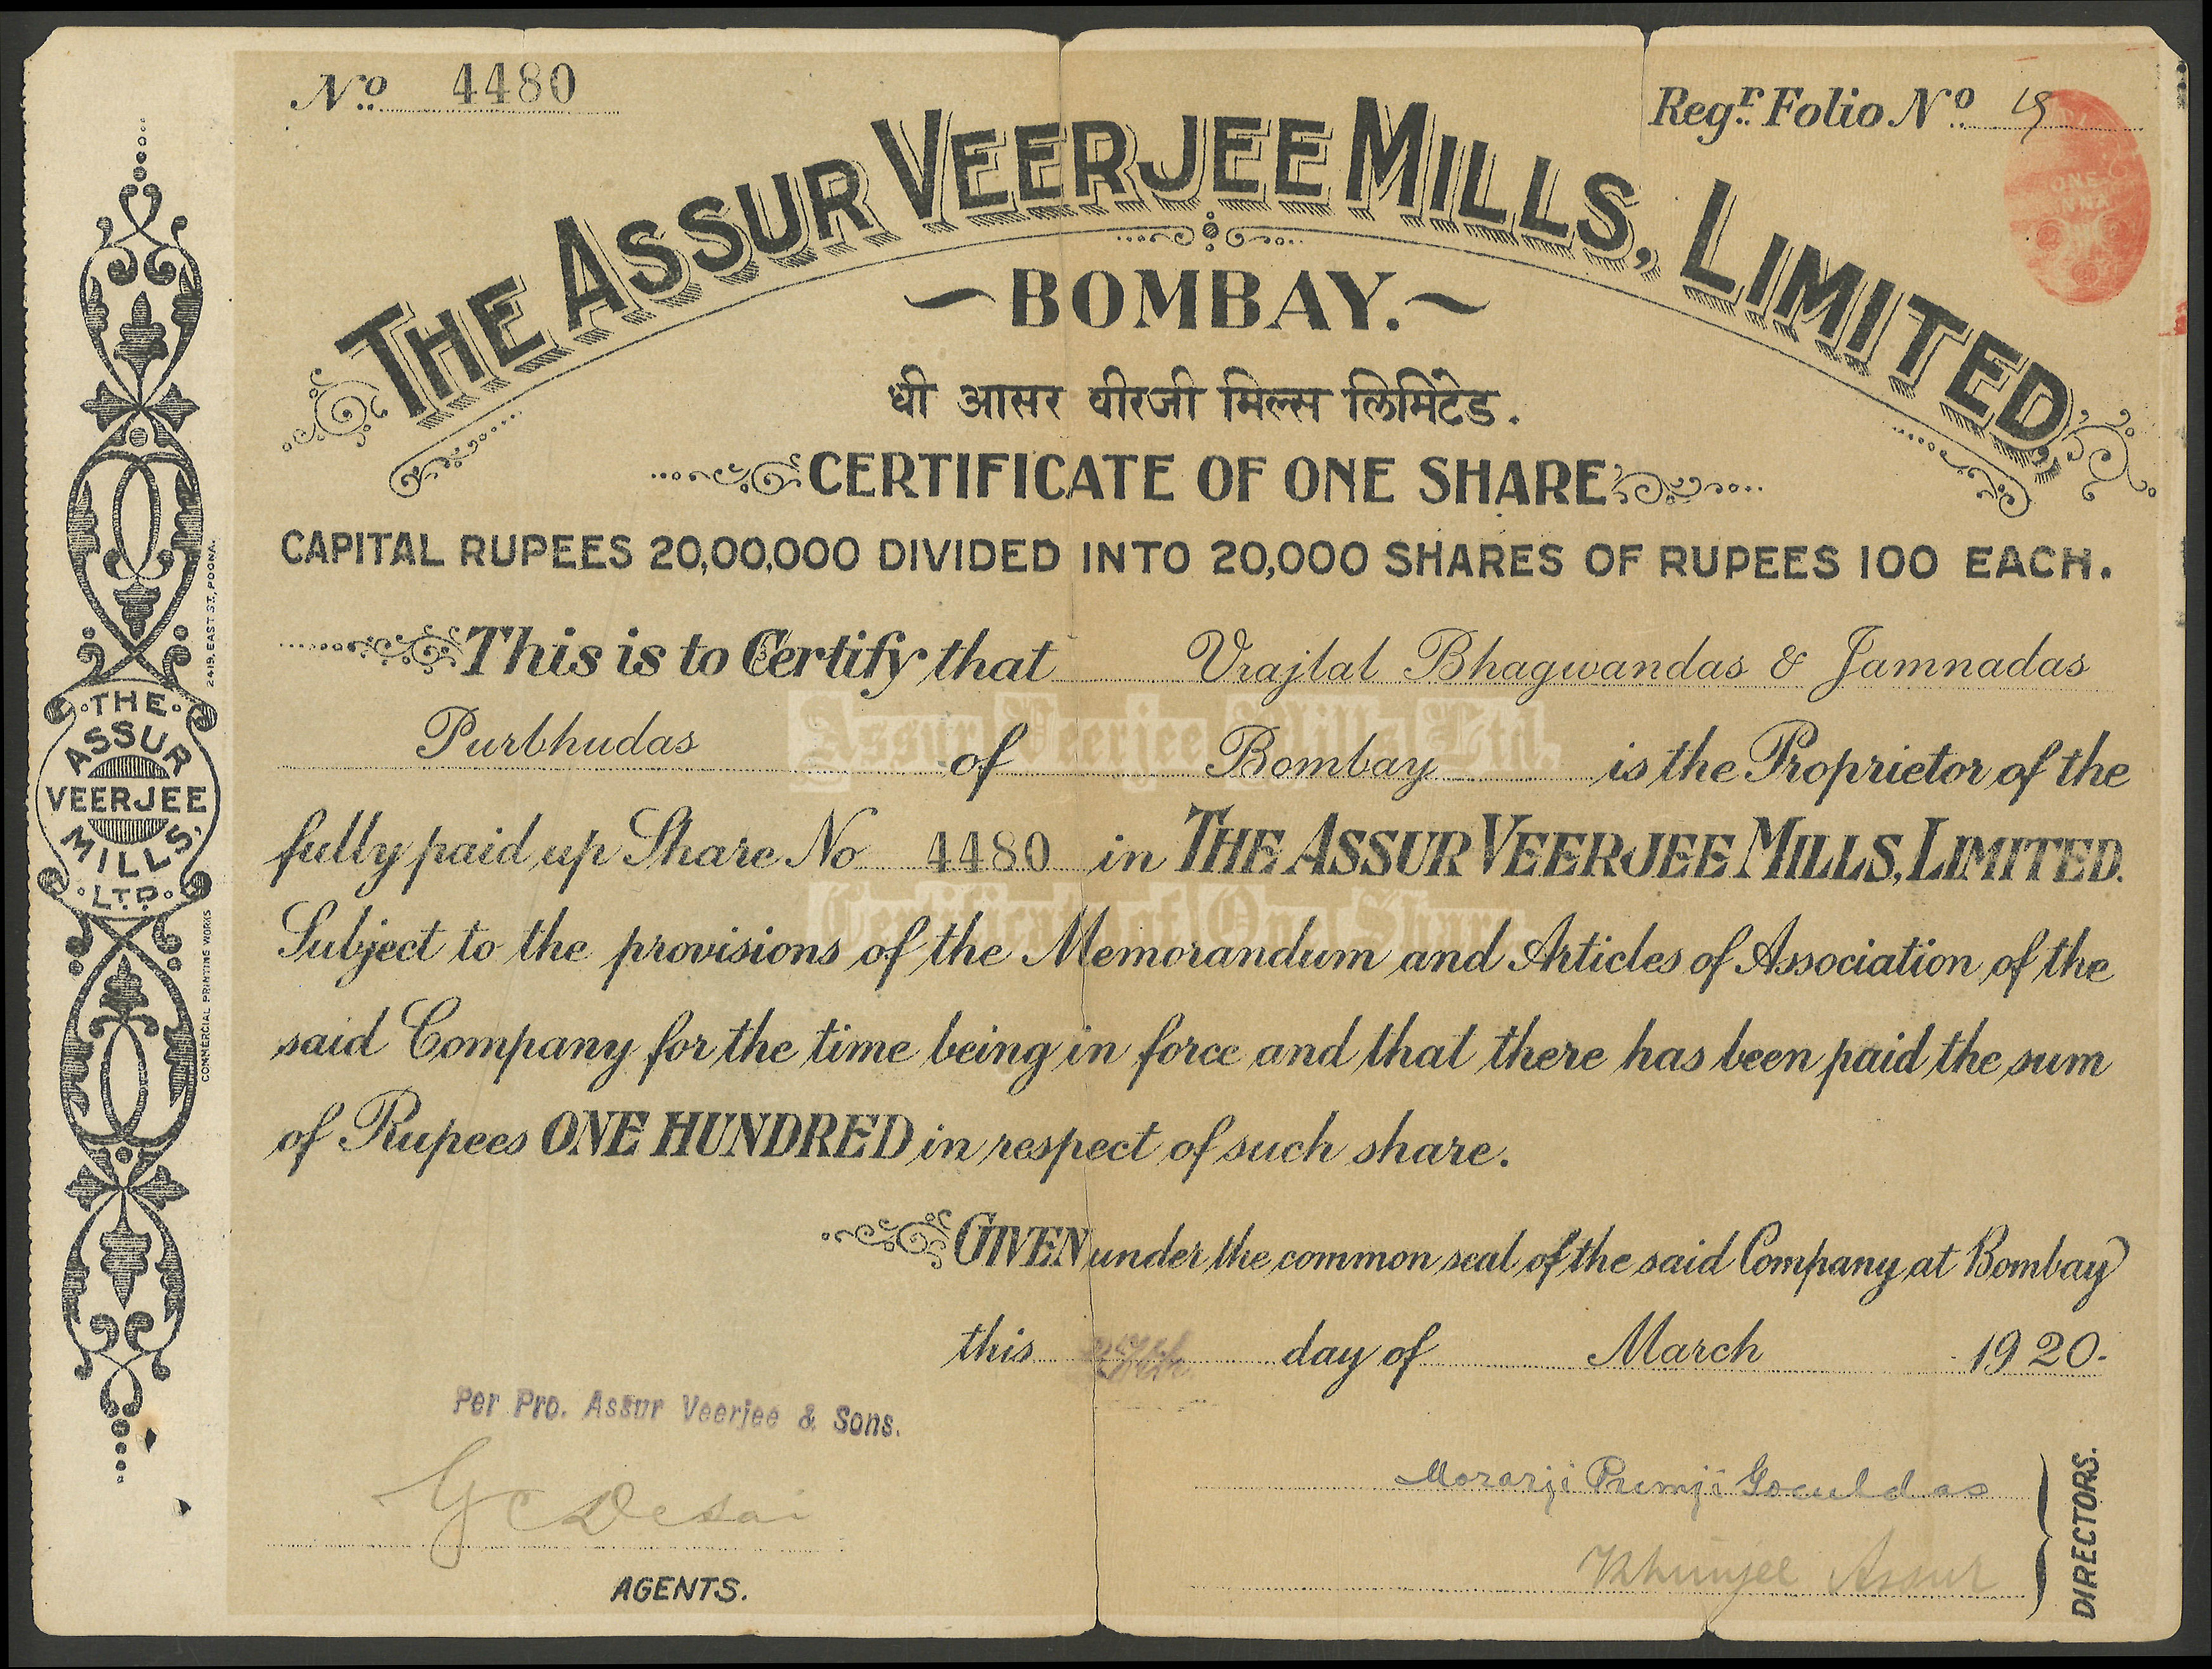 No. 4480
Regr. Folio No. 19
ONE
ANNA
THE ASSUR VEERJEE MILLS, LIMITED,
BOMBAY.
धी आसर वीरजी मिल्स लिमिटेड.
CERTIFICATE OF ONE SHARE
CAPITAL RUPEES 20,00,000 DIVIDED INTO 20,000 SHARES OF RUPEES 100 EACH.
This is to Certify that Vrajlal Bhagwandas & Jamnadas
Purbhudas of Bombay is the Proprietor of the
Assur Veerjee Mills Ltd.
fully paid up Share No 4480 in THE ASSUR VEERJEE MILLS, LIMITED.
Certificate of One Share
Subject to the provisions of the Memorandum and Articles of Association of the
said Company for the time being in force and that there has been paid the sum
of Rupees ONE HUNDRED in respect of such share.
GIVEN under the common seal of the said Company at Bombay
this day of March 1920.
Per Pro. Assur Veerjee & Sons.
G C Desai
AGENTS.
Morarji Premji Goculdas
Assur
DIRECTORS.
THE
ASSUR
VEERJEE
MILLS,
LTD.
2419, EAST ST, POONA.
COMMERCIAL PRINTING WORKS